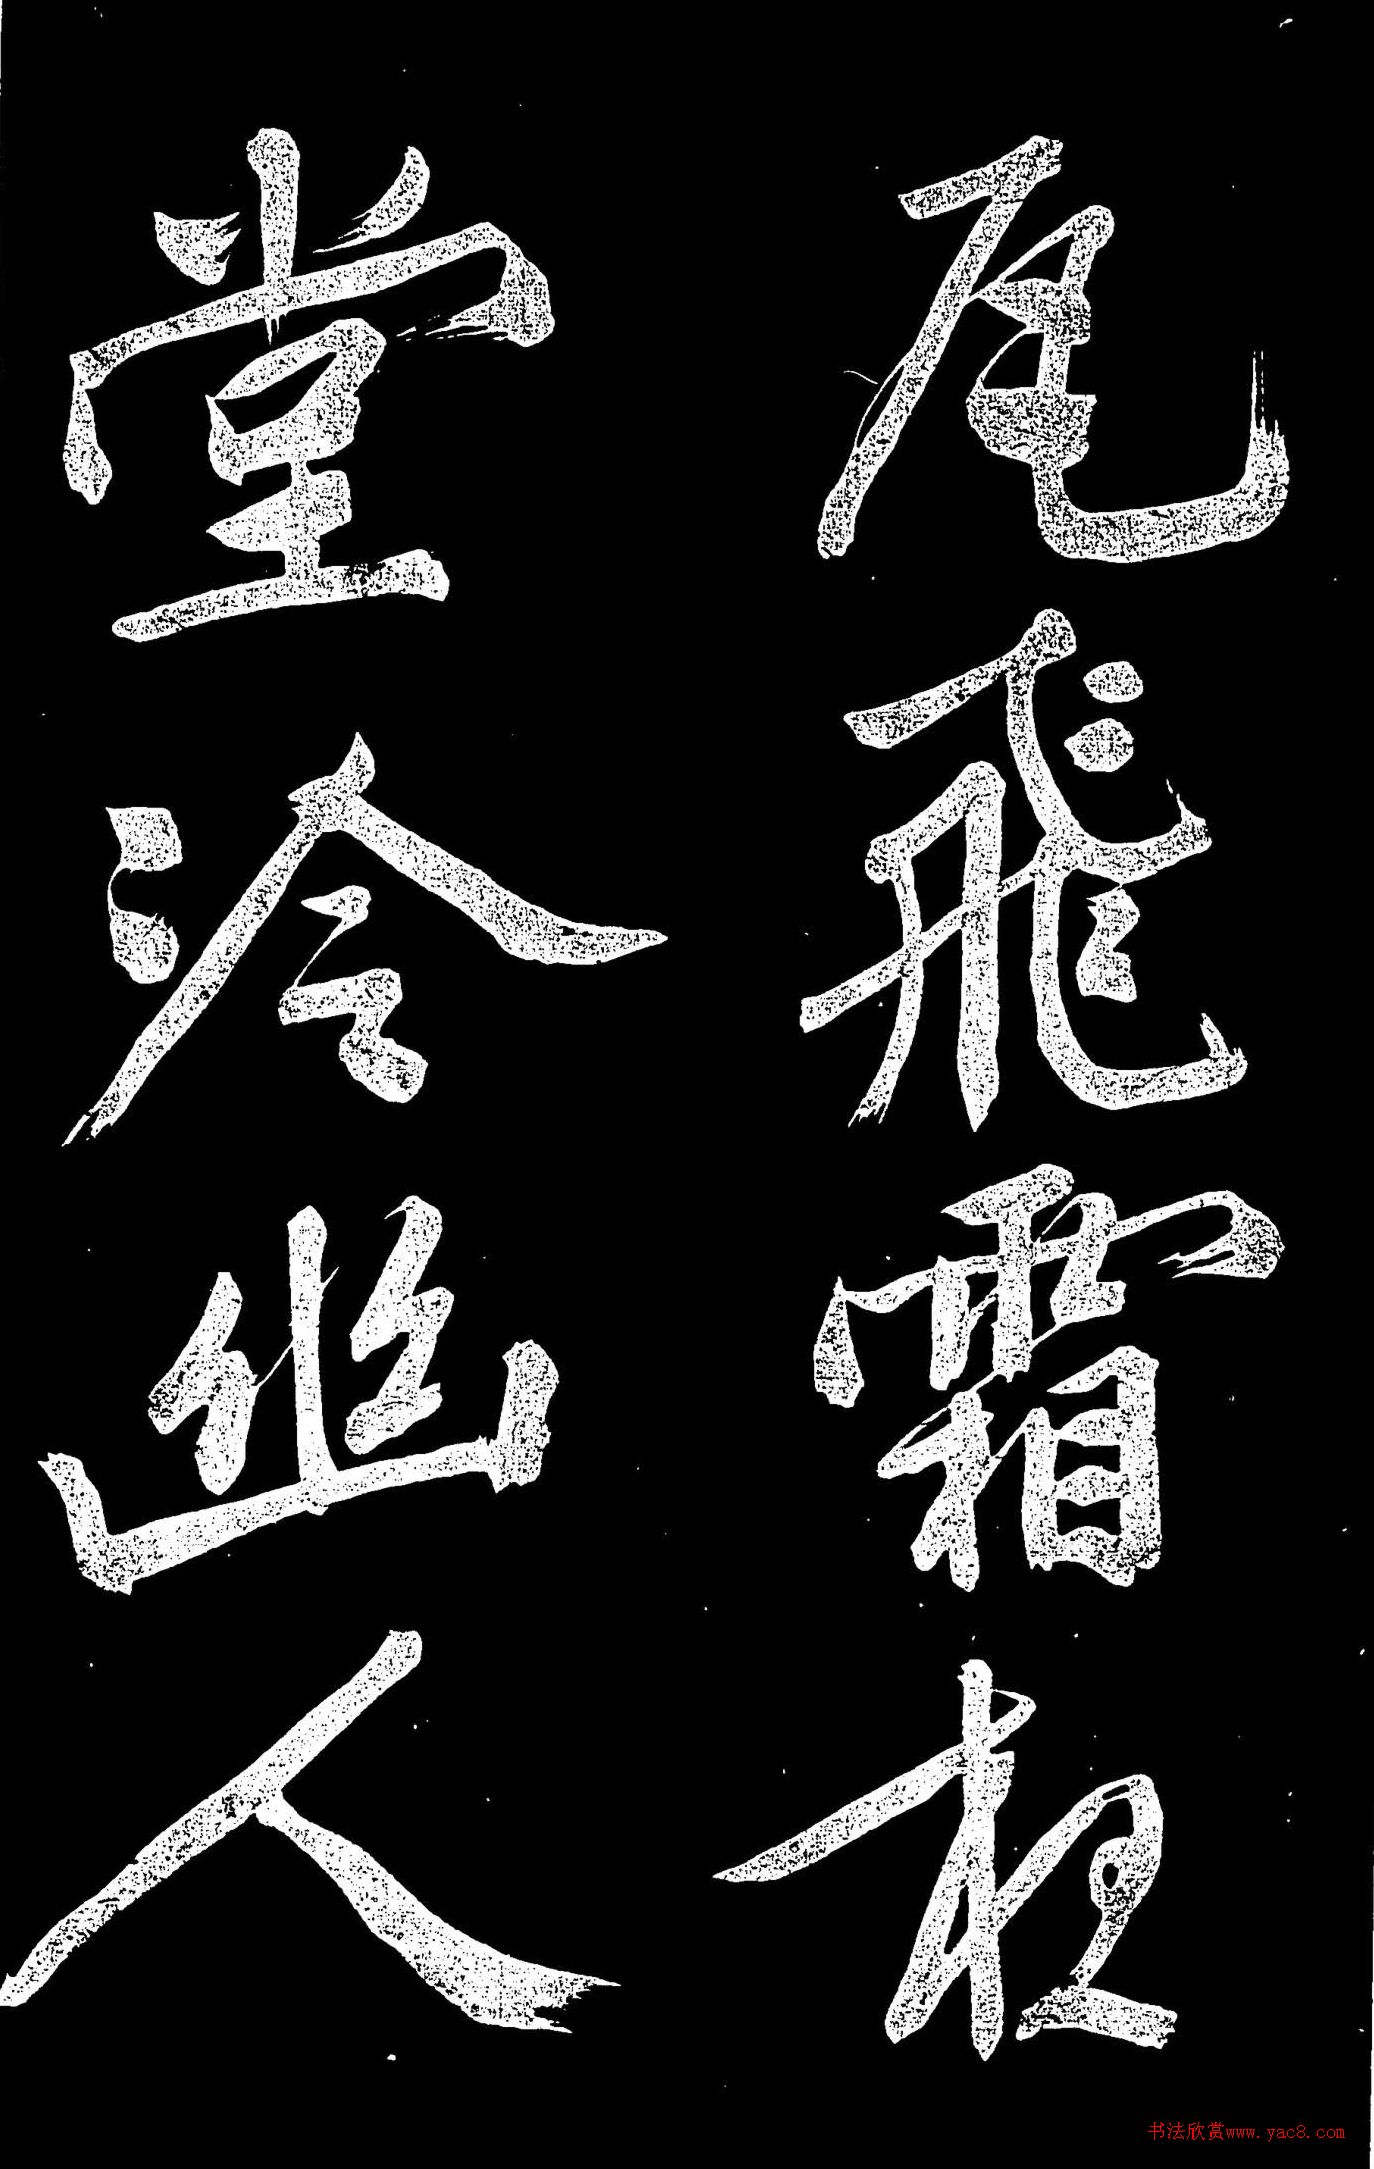 瓦飛霜夜
堂冷幽人
书法欣赏www.yac8.com